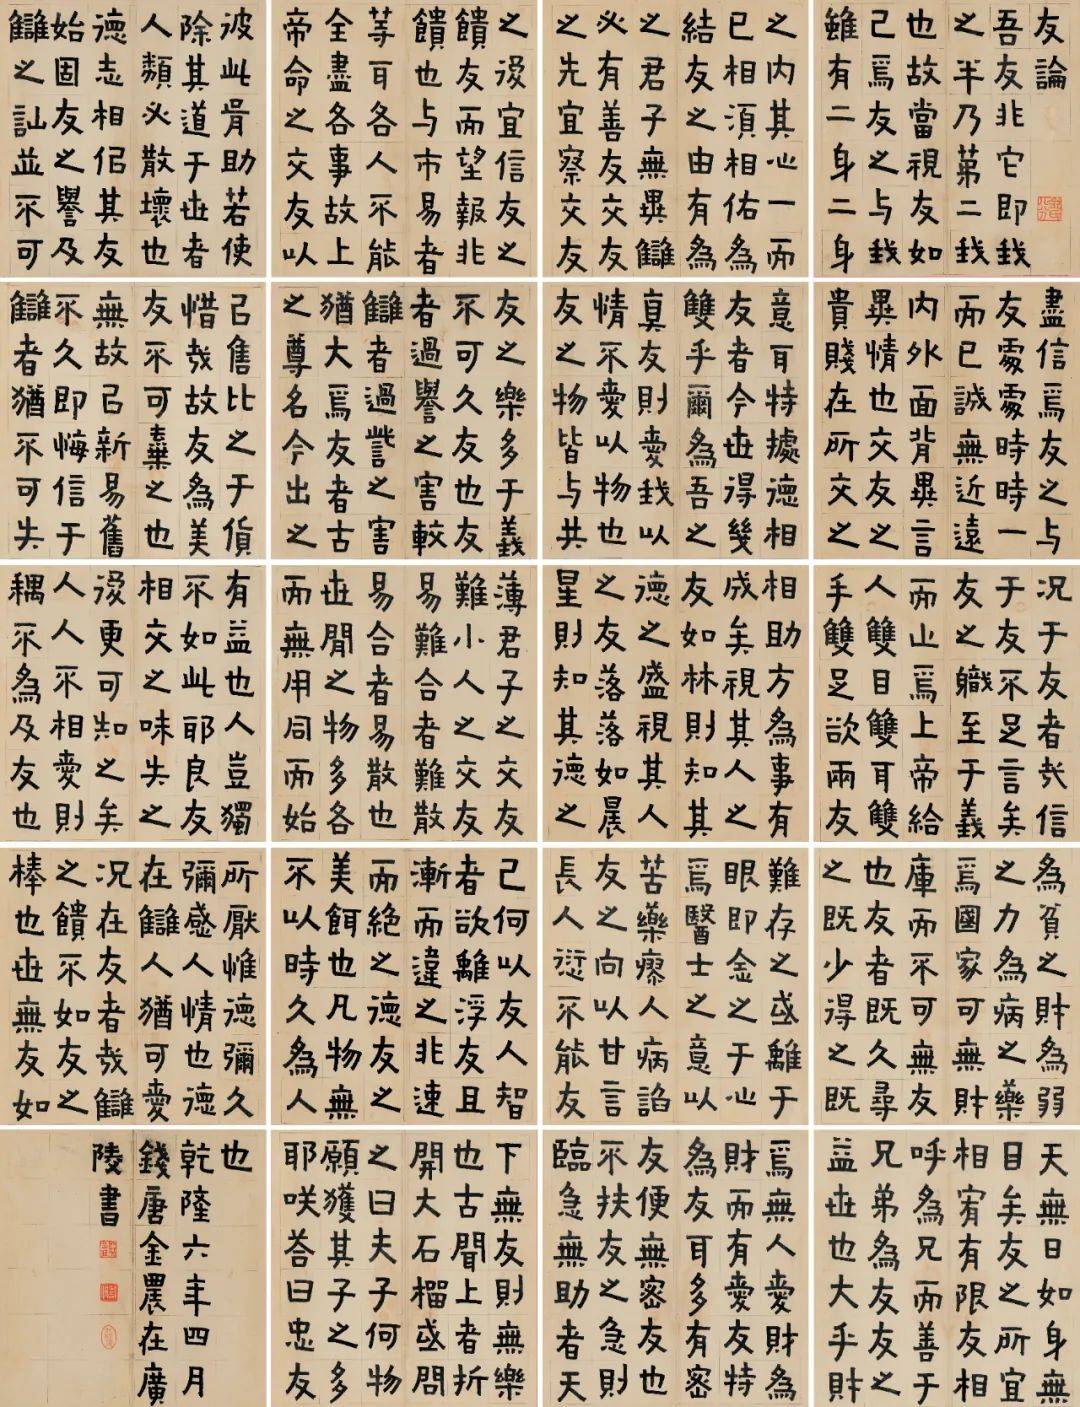 友論
吾友非它即我
之半乃第二我
也故當視友如
己焉友之与我
雖有二身二身
之内其心一而
已相須相佑為
結友之由有為
之君子無異讎
必有善友交友
之先宜察交友
之後宜信友之
饋友而望報非
饋也与市易者
等耳各人不能
全盡各事故上
帝命之交友以
彼此胥助若使
除其道于世者
人類必散壞也
德志相侣其友
始固友之譽及
讎之訕並不可
盡信焉友之与
友處處時時一
而已誠無近遠
内外面背異言
異情也交友之
貴賤在所交之
意耳特據德相
友者今世得幾
雙乎爾為吾之
真友則愛我以
情不愛以物也
友之物皆与共
友之樂多于義
不可久友也友
者過譽之害較
讎者過訾之害
猶大焉友者古
之尊名今出之
己售比之于貨
惜哉故友為美
友不可棄之也
無故己新易舊
不久即悔信于
讎者猶不可失
况于友者哉信
于友不足言矣
友之職至于義
而止焉上帝給
人雙目雙耳雙
手雙足欲兩友
相助方為事有
成矣視其人之
友如林則知其
德之盛視其人
之友落落如晨
星則知其德之
薄君子之交友
難小人之交友
易難合者難散
易合者易散也
世間之物多各
而無用同而始
有益也人豈獨
不如此耶良友
相交之味失之
後更可知之矣
人人不相愛則
耦不為及友也
為貧之財為弱
之力為病之藥
焉國家可無財
庫而不可無友
也友者既久尋
之既少得之既
難存之或離于
眼即金之于心
焉醫士之意以
苦藥瘳人病諂
友之向以甘言
長人愆不能友
己何以友人智
者欲離浮友且
漸而違之非速
而絕之德友之
美餌也凡物無
不以時久為人
所厭惟德彌久
彌感人情也德
在讎人猶可愛
况在友者哉讎
之饋不如友之
棒也世無友如
天無日如身無
目矣友之所宜
相宥有限友相
呼為兄而善于
兄弟為友友之
益世也大乎財
焉無人愛財為
財而有愛友特
為友耳多有密
友便無密友也
不扶友之急則
臨急無助者天
下無友則無樂
也古聞上者折
開大石榴或問
之曰夫子何物
願獲其子之多
耶咲答曰忠友
也
乾隆六年四月
錢唐金農在廣
陵書